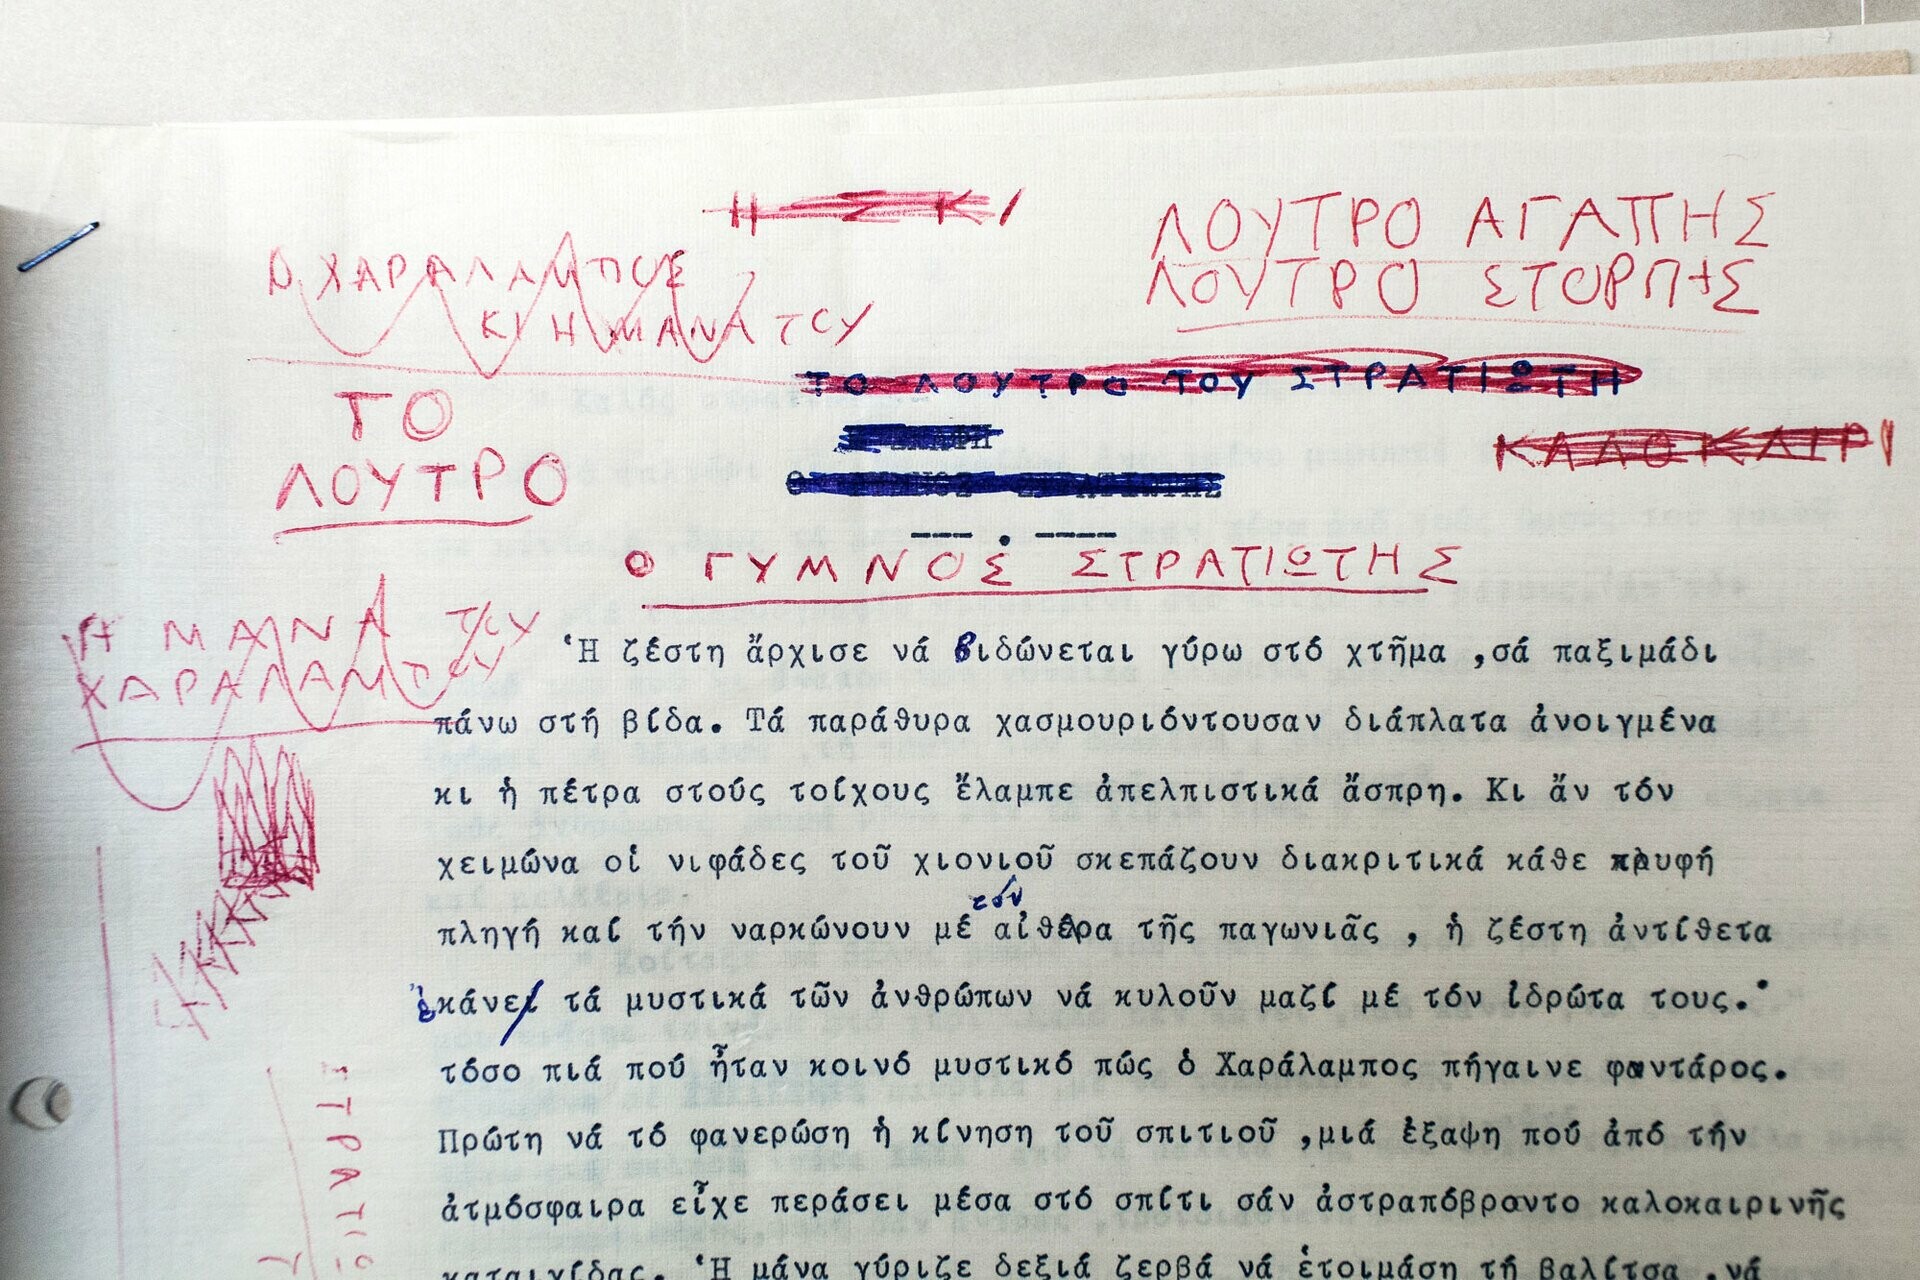 Η Σ Κ Ι
ΛΟΥΤΡΟ ΑΓΑΠΗΣ
ΛΟΥΤΡΟ ΣΤΟΡΓΗΣ
Ο ΧΑΡΑΛΑΜΠΟΣ
ΚΙ Η ΜΑΝΑ ΤΟΥ
ΤΟ ΛΟΥΤΡΟ ΤΟΥ ΣΤΡΑΤΙΩΤΗ
ΤΟ
ΛΟΥΤΡΟ
ΚΑΛΟΚΑΙΡΙ
Ο ΓΥΜΝΟΣ ΣΤΡΑΤΙΩΤΗΣ
---- . ----
Ο ΓΥΜΝΟΣ ΣΤΡΑΤΙΩΤΗΣ
Η ΜΑΝΑ ΤΟΥ
ΧΑΡΑΛΑΜΠΟΥ
Ἡ ζέστη ἄρχισε νά βιδώνεται γύρω στό χτῆμα ,σά παξιμάδι
πάνω στή βίδα. Τά παράθυρα χασμουριόντουσαν διάπλατα ἀνοιγμένα
κι ἡ πέτρα στούς τοίχους ἔλαμπε ἀπελπιστικά ἄσπρη. Κι ἄν τόν
χειμώνα οἱ νιφάδες τοῦ χιονιοῦ σκεπάζουν διακριτικά κάθε κρυφή
τόν
πληγή καί τήν ναρκώνουν μέ αἰθέρα τῆς παγωνιᾶς , ἡ ζέστη ἀντίθετα
ἔκάνει τά μυστικά τῶν ἀνθρώπων νά κυλοῦν μαζί μέ τόν ἱδρώτα τους.
τόσο πιά πού ἦταν κοινό μυστικό πώς ὁ Χαράλαμπος πήγαινε φαντάρος.
Πρώτη νά τό φανερώση ἡ κίνηση τοῦ σπιτιοῦ ,μιά ἔξαψη πού ἀπό τήν
ἀτμόσφαιρα εἶχε περάσει μέσα στό σπίτι σάν ἀστραπόβροντο καλοκαιρινῆς
καταιγίδας. Ἡ μάνα γύριζε δεξιά ζερβά νά ἑτοιμάση τή βαλίτσα ,νά
ΣΤΡΑΤΙΩ